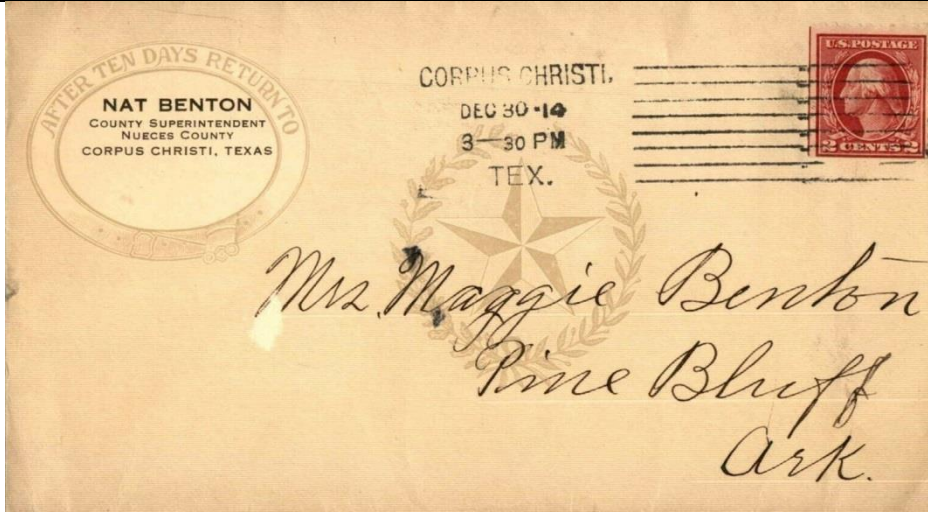 AFTER TEN DAYS RETURN TO
NAT BENTON
COUNTY SUPERINTENDENT
NUECES COUNTY
CORPUS CHRISTI, TEXAS
CORPUS CHRISTI,
DEC 30 -14
3—30 PM
TEX.
U.S. POSTAGE
2 CENTS 2
Mrs. Maggie Benton
Pine Bluff
Ark.